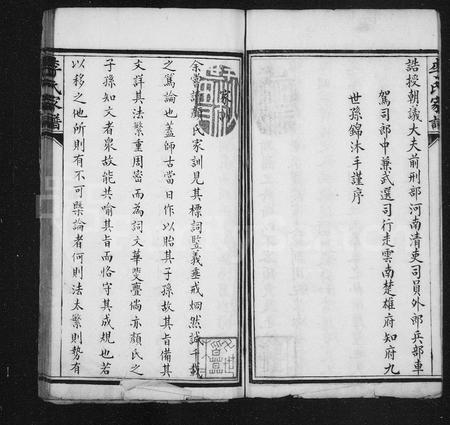 李氏家譜
誥授朝議大夫前刑部河南清吏司員外郎兵部車
駕司郎中兼武選司行走雲南楚雄府知府九
世孫錦沐手謹序
余嘗讀顏氏家訓見其標詞豎義垂戒烱然誠千載
之篤論也蓋師古當日作以貽其子孫故其旨備其
文詳其法繁重周密而為詞文華斐亹倘亦顏氏之
子孫知文者衆故能共喻其旨而恪守其成規也若
以移之他所則有不可槩論者何則法太繁則勢有
李氏家譜